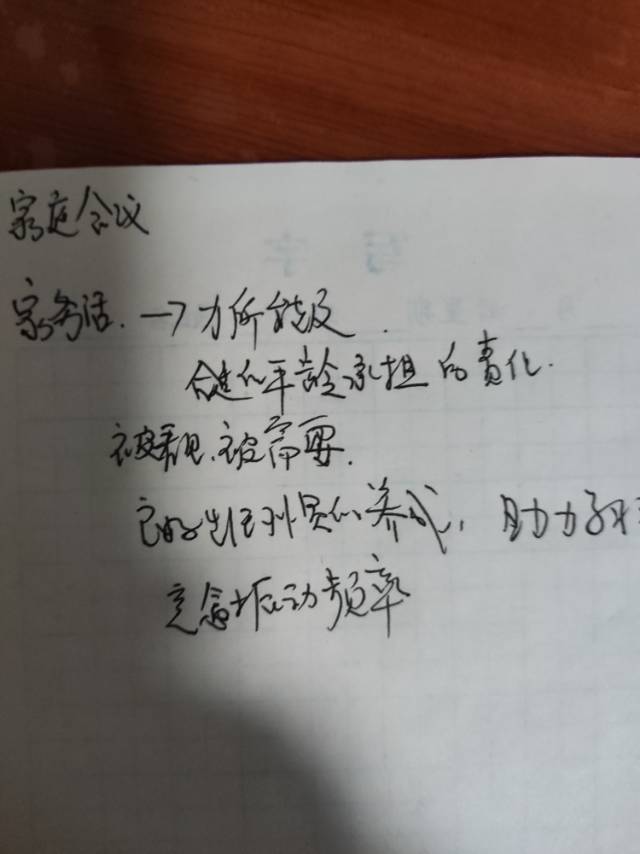 家庭会议
家务活. → 力所能及.
合适的年龄承担的责任.
被看见、被需要.
良好生活习惯的养成, 助力
意念振动频率
写字